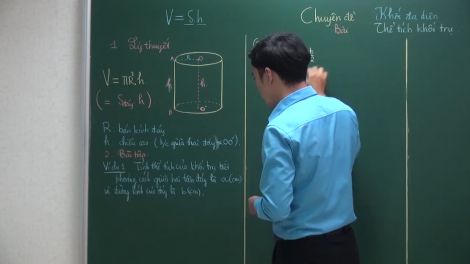 V = S.h
Chuyên đề Khối đa diện
Bài: Thể tích khối trụ
1. Lý thuyết
V = πR².h
(= Sđáy.h)
R O
h h
O'
R: bán kính đáy
h: chiều cao (k/c giữa hai đáy OO')
2. Bài tập
Ví dụ 1: Tính thể tích của khối trụ biết
khoảng cách giữa hai tâm đáy là a (cm)
và đường kính của đáy là b (cm).